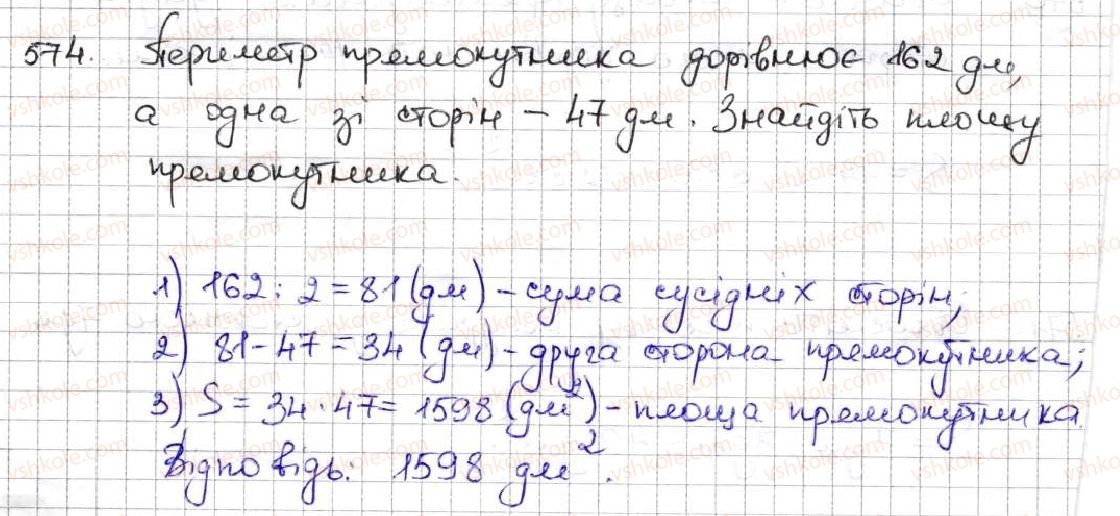 574. Периметр прямокутника дорівнює 162 дм,
а одна зі сторін – 47 дм. Знайдіть площу
прямокутника.
1) 162 : 2 = 81 (дм) – сума сусідніх сторін;
2) 81 – 47 = 34 (дм) – друга сторона прямокутника;
3) S = 34 · 47 = 1598 (дм²) – площа прямокутника.
Відповідь: 1598 дм².